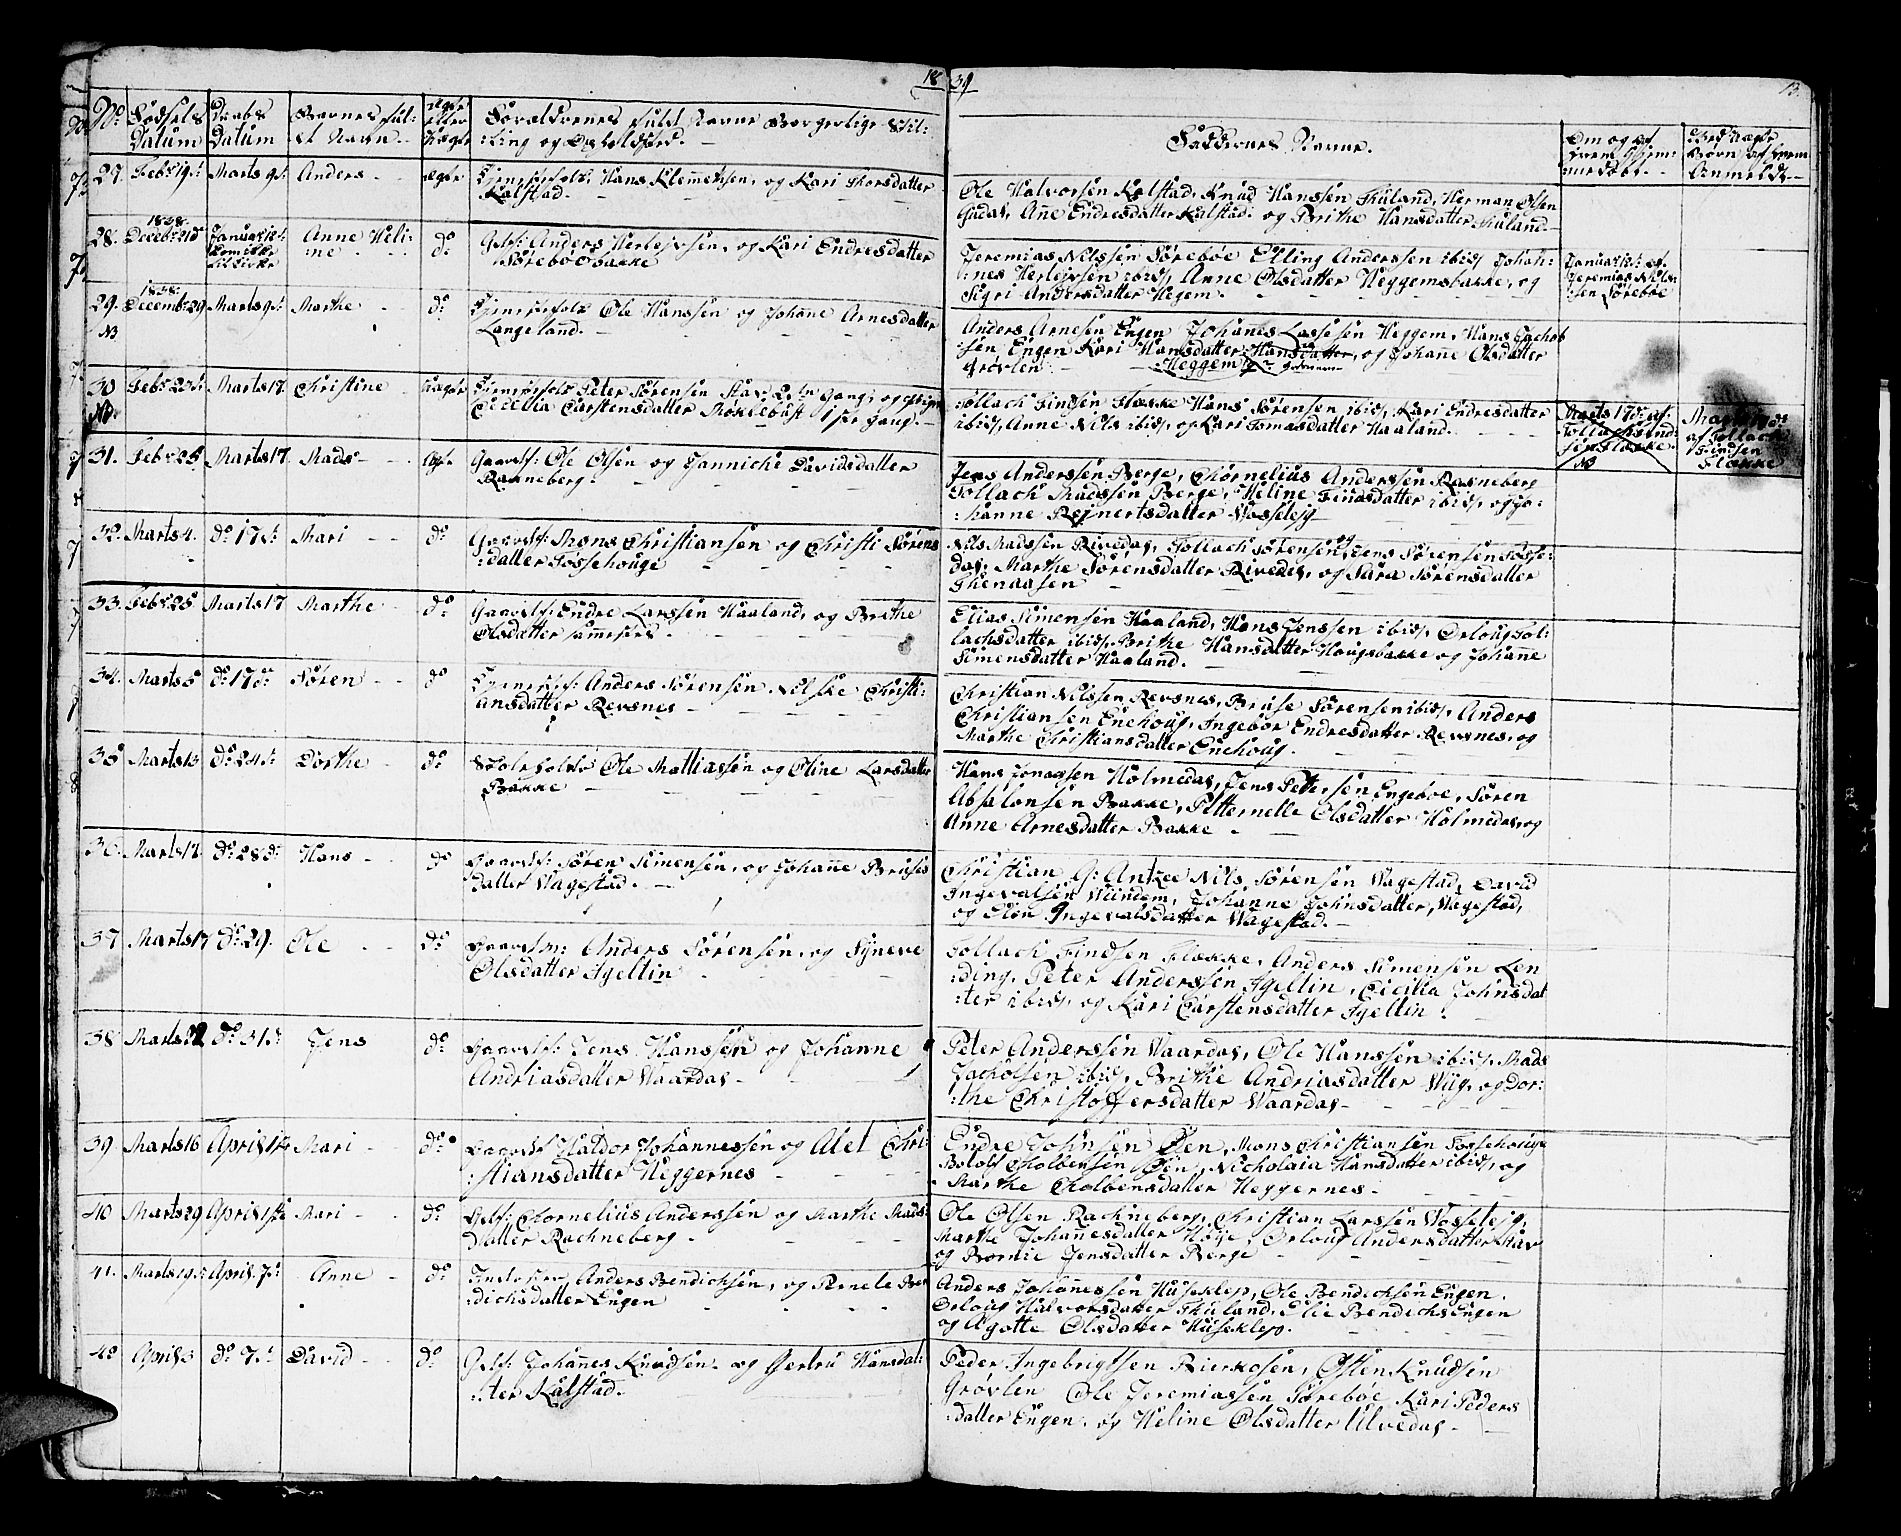 18 39
13.
No. Fødsels Datum
Daabs Datum
Barnets fulde Navn
ægte eller Uægte
Forældrenes fulde Navne Borgerlige Stilling og Opholdsted.
Faddernes Navne.
Om og af hvem hjemmedøbt.
Ved uægte Børn af hvem Anmeldt
27. Febr 19d: Marts 9d: Anders ægte
Tjenestefolk: Hans Klemetsen, og Kari Thorsdatter
Kalstad.
Ole Halvorsen Kalstad, Knud Hanssen Thuland, Herman Olsen
Gudal, Anne Endresdatter Kalstad og Brithe Hansdatter Thuland
28. 1838. Decebr 21d Januar 12d: Anne Heline do
Gaardf: Anders Herlejvsen, og Kari Endresdatter
Sørebøbakke
Jeremias Nilssen Sørebøe Elling Anderssen ibid, Johannes
Herlejvsen ibid, Anne Olsdatter Heggemsbakke, og
Sigri Andersdatter Hegem
Januar 12d: af Jeremias Nilssen Sørebøe
29. NB 1838. Decembr 29 Marts 9d: Marthe do
Tjenestefolk Ole Hanssen og Johane Arnesdatter
Langeland.
Anders Arnesen Engen Johanes Lassesen Heggem, Hans Jachobsen
Engen Kari Hansdatter Hansdatter, og Johanne Olsdatter
Grøvlen Heggem
30 NB. Febr 20d: Marts 17 Christine Uægte
Tjenestefolk Peter Sørensen Stav: 2den Gang, og Pigen
Cecilia Carstensdatter Møklebust 1ste Gang.
Tollach Findsen Flække Hans Sørensen ibid, Kari Endresdatter
ibid, Anne Nils ibid, og Kari Tomasdatter Haaland.
Marts 17d: af Tollach Findsen Flække NB
Marts 17d: af Tollach Findsen Flække
31. Febr 25 Marts 17 Mads ægte
Gaardf: Ole Olsen og Jannicke Davidsdatter
Rakneberg.
Jens Anderssen Berge, Chornelius Anderssen Rakneberg
Tollach Madssen Berge, Heline Findsdatter ibid, og Johanne
Rejnertsdatter Wasselejg
32. Marts 4. do 17d: Mari do
Gaardf: Mons Christiansen og Christi Sørensdatter
Fossehouge
Nils Madssen Rivedal, Tollach Sørensen og Jens Sørensen Fossedal,
Marthe Sørensdatter Rivedal, og Sara Sørensdatter
Thienaasen
33. Febr 25 Marts 17 Marthe do
Gaardf: Endre Larssen Haaland, og Brithe
Olsdatter sammested.
Elias Simensen Haaland, Hans Jenssen ibid, Orloug Tollachsdatter
ibid, Brithe Hansdatter Hougsbakke og Johanne
Simensdatter Haaland.
34. Marts 5 do 17d: Søren do
Tjenestef: Anders Sørensen Nilske Christiansdatter
Revsnes
Christian Nilssen Revsnes, Bruse Sørensen ibid, Anders
Christiansen Enehoug, Ingebor Endresdatter Revsnes, og
Marthe Christiansdatter Enehoug.
35 Marts 13 do 24d: Dorthe do
Skoleholder Ole Mathiassen og Oline Larsdatter
Bakke
Hans Jonassen Holmedal, Jens Petersen Engebøe, Søren
Absalonsen Bakke, Petternelle Olsdatter Holmedal, og
Anne Arnesdatter Bakke
36 Marts 12 do 28d: Hans do
Gaardf: Søren Simensen, og Johanne Brusesdatter
Wagestad.
Christian G: Anker Nils Sørensen Wagestad, David
Ingevalsen Wundem, Johanne Johnsdatter Wagestad,
og Elen Ingevalsdatter Wagestad.
37 Marts 17 do 29. Ole do
Gaardm: Anders Sørensen, og Syneve
Olsdatter Igeltin
Tollach Findsen Flække, Anders Simensen Lending,
Peter Anderssen Igeltin, Cicilia Johnsdatter
ibid, og Kari Carstensdatter Igeltin
38 Marts 22 do 31d: Jens do
Gaardf: Jens Hanssen og Johanne
Andriasdatter Waardal
Peter Anderssen Waardal, Ole Hanssen ibid, Mads
Jacholsen ibid, Brithe Andriasdatter Wiig, og Dorthe
Christoffersdatter Waardal
39 Marts 16 April 1ste Mari do
Gaardf Haldor Johannessen og Alet Christiansdatter
Heggernes
Endre Johnsen Øen, Mons Christiansen Fossehouge
Bololf Cholbensen Øen, Nicholaia Hansdatter ibid, og
Marthe Cholbensdatter Heggernes
40 Marts 29 April 1ste Mari do
Gdf: Chornelius Anderssen og Marthe Madsdatter
Rachneberg
Ole Olsen Rachneberg, Christian Larssen Wasselejg,
Marthe Johanesdatter Høje, Orloug Andersdatter Stav
og Børnie Jensdatter Berge
41. Marts 19d: April 7d: Anne do
Inderster, Anders Bendichsen, og Pernele Bendichsdatter
Engen
Anders Johannessen Huseklep, Ole Bendichsen Engen.
Orloug Halvorsdatter Thuland, Elie Bendichs Engen
og Agotte Olsdatter Huseklep.
42 April 3 do 7d: David do
Gdf: Johannes Knudsen og Gertru Hansdatter
Kalstad.
Peder Ingebrigtsen Bierkosen, Østen Knudsen
Grøvlen Ole Jeremiassen Sørebøe Kari Pedersdatter
Engen, og Heline Olsdatter Ulvedal